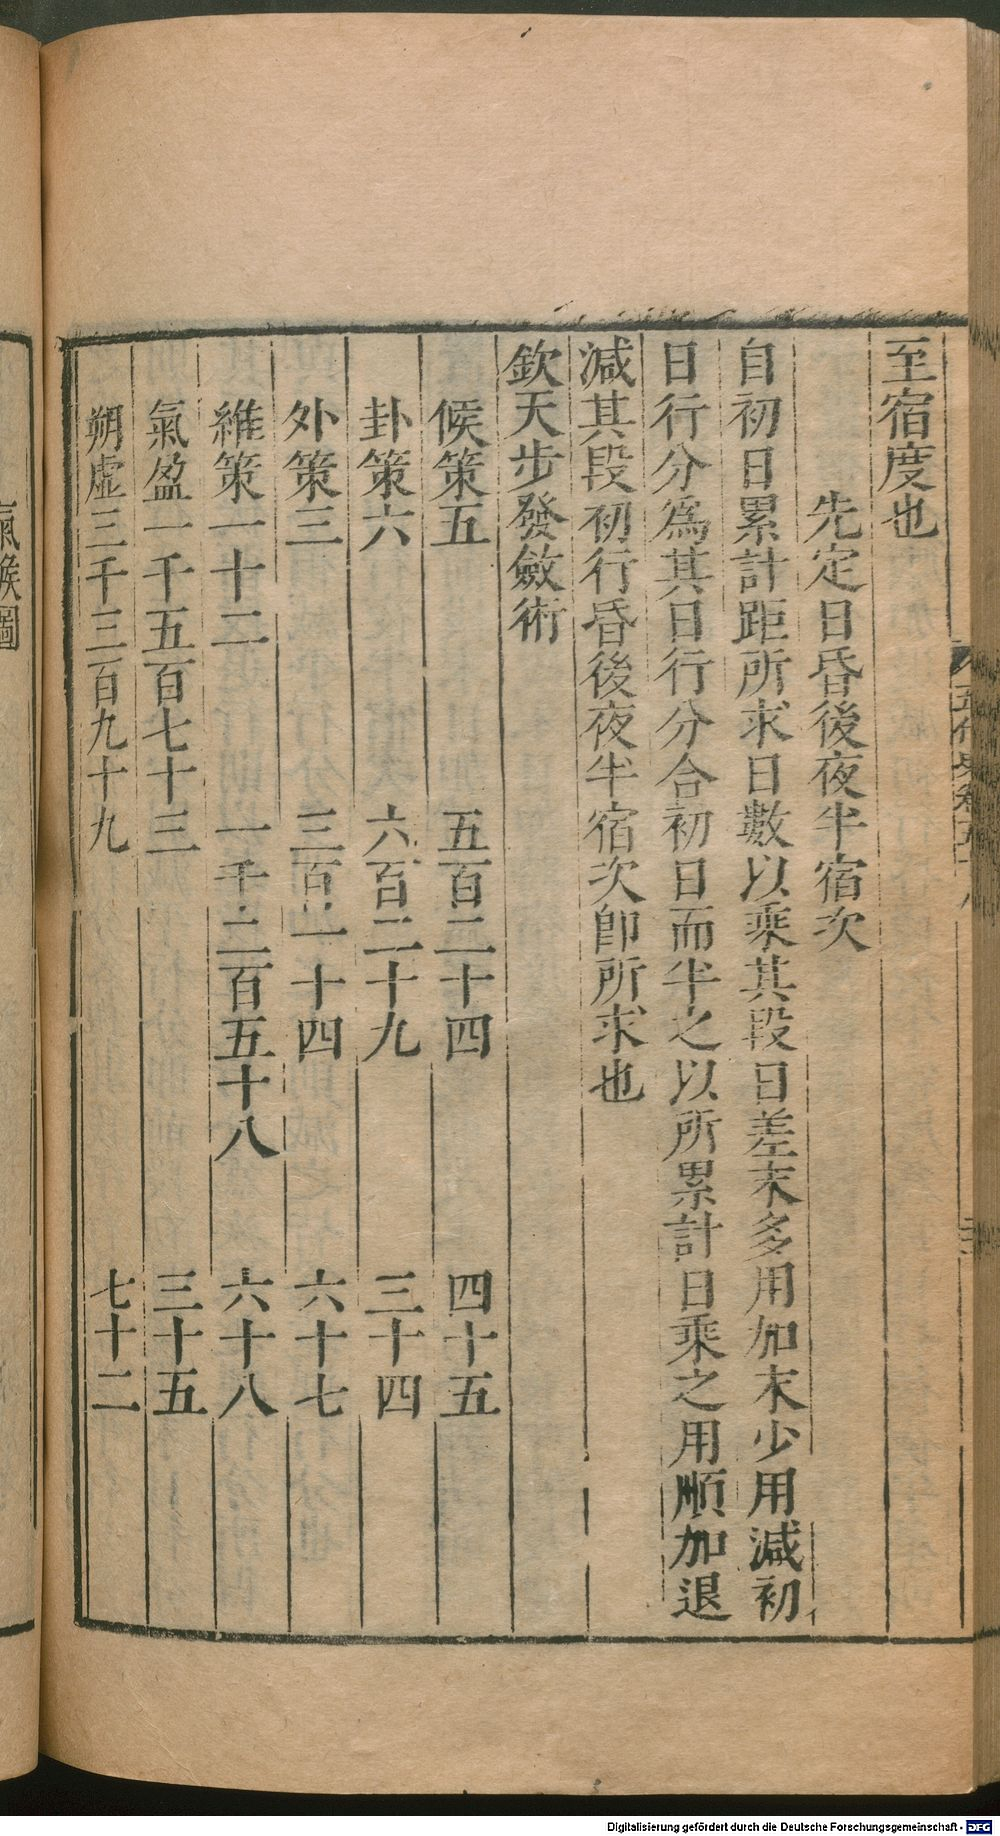 至宿度也
先定日昏後夜半宿次
自初日累計距所求日數以乘其段日差末多用加末少用減初
日行分爲其日行分合初日而半之以所累計日乘之用順加退
減其段初行昏後夜半宿次卽所求也
欽天步發斂術
候策五 五百二十四 四十五
卦策六 六百二十九 三十四
外策三 三百一十四 六十七
維策一十二 一千二百五十八 六十八
氣盈一千五百七十三 三十五
朔虛三千三百九十九 七十二
氣候圖
Digitalisierung gefördert durch die Deutsche Forschungsgemeinschaft - DFG